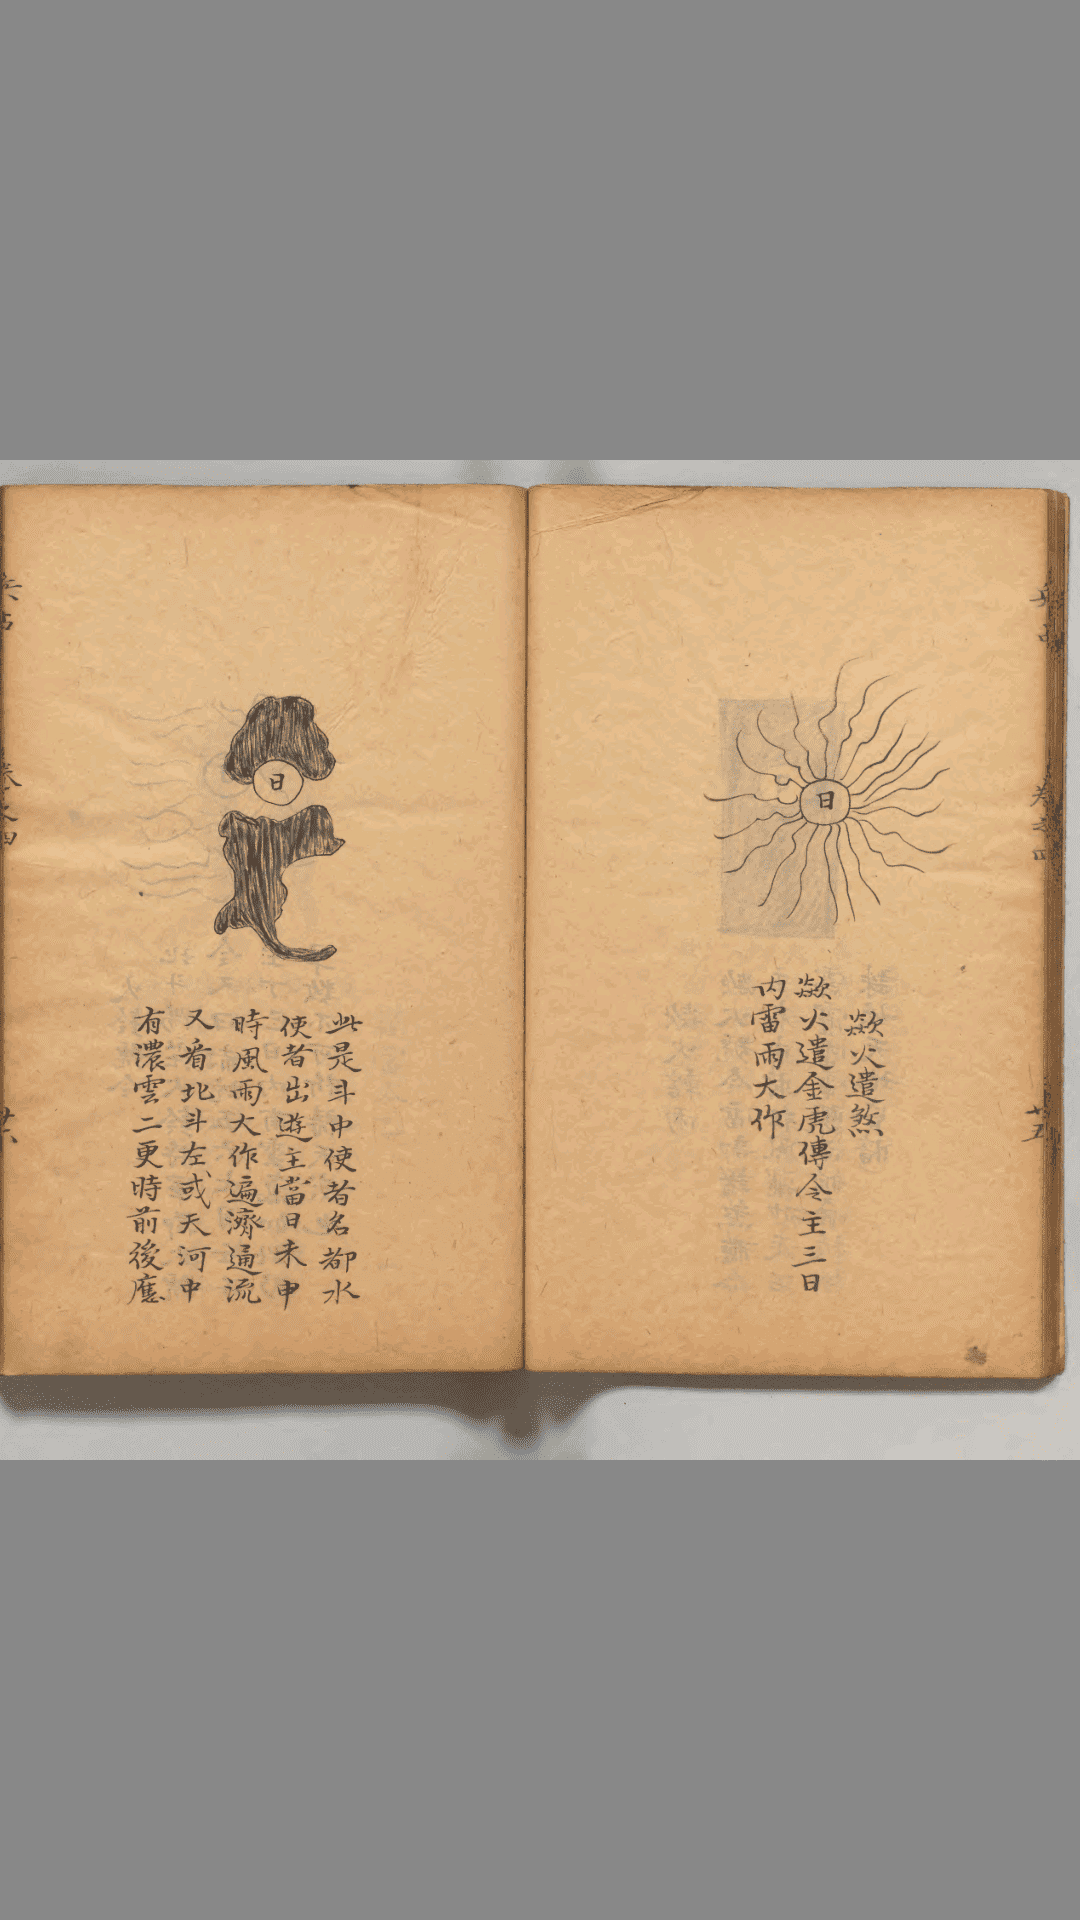 日
歘火遣煞
歘火遣金虎傳令主三日
内雷雨大作
日
此是斗中使者名都水
使者出遊主當日未申
時風雨大作遍濟通流
又看北斗左或天河中
有濃雲二更時前後應